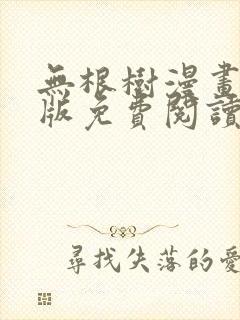 無根樹漫畫
版免費閱讀
尋找失落的愛